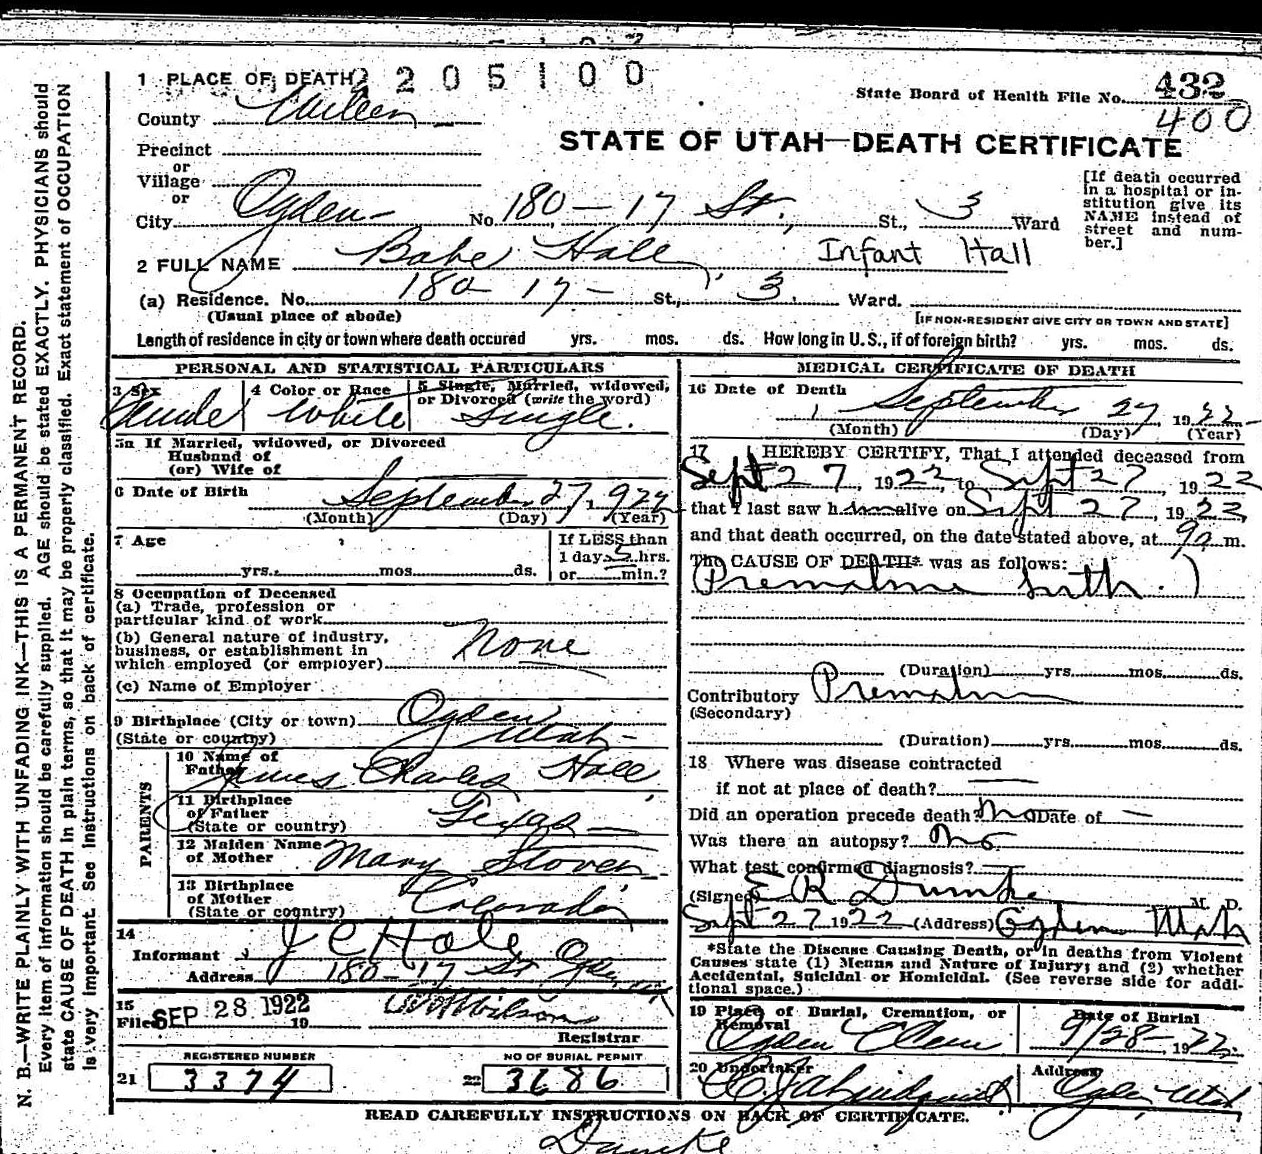 1 PLACE OF DEATH 2 2 0 5 1 0 0
State Board of Health File No. 432
400
County
STATE OF UTAH—DEATH CERTIFICATE
Precinct
or
Village
or
City Ogden No. 180 – 17 St. St., 3 Ward
[If death occurred in a hospital or institution give its NAME instead of street and number.]
2 FULL NAME Babe Hall Infant Hall
(a) Residence. No. 180 17 – St., 3. Ward.
(Usual place of abode) [IF NON-RESIDENT GIVE CITY OR TOWN AND STATE]
Length of residence in city or town where death occured yrs. mos. ds. How long in U. S., if of foreign birth? yrs. mos. ds.
PERSONAL AND STATISTICAL PARTICULARS
3 Sex 4 Color or Race 5 Single, Married, widowed, or Divorced (write the word)
Female White Single.
5a If Married, widowed, or Divorced
Husband of
(or) Wife of
6 Date of Birth September 27, 1922
(Month) (Day) (Year)
7 Age yrs. mos. ds. If LESS than 1 day 5 hrs. or min.?
8 Occupation of Deceased
(a) Trade, profession or particular kind of work
(b) General nature of industry, business, or establishment in which employed (or employer) None
(c) Name of Employer
9 Birthplace (City or town) Ogden
(State or country) Utah –
PARENTS
10 Name of Father James Charles Hall
11 Birthplace of Father (State or country) Texas –
12 Maiden Name of Mother Mary Stover
13 Birthplace of Mother (State or country) Colorado
14
Informant J C Hall
Address 180 – 17 St Ogden, Utah
15
Filed SEP 28 1922 19 Wilson
Registrar
REGISTERED NUMBER NO OF BURIAL PERMIT
21 3374 22 3686
MEDICAL CERTIFICATE OF DEATH
16 Date of Death
September 27 1922
(Month) (Day) (Year)
17 I HEREBY CERTIFY, That I attended deceased from
Sept 27, 1922, to Sept 27, 1922
that I last saw h alive on Sept 27, 1922
and that death occurred, on the date stated above, at 9 a m.
The CAUSE OF DEATH* was as follows:
(Premature birth.)
(Duration) yrs. mos. ds.
Contributory Premature
(Secondary)
(Duration) yrs. mos. ds.
18 Where was disease contracted
if not at place of death? —
Did an operation precede death? no Date of —
Was there an autopsy? no
What test confirmed diagnosis? —
(Signed) E R Dumke M. D.
Sept 27 1922 (Address) Ogden Utah
*State the Disease Causing Death, or in deaths from Violent Causes state (1) Means and Nature of Injury; and (2) whether Accidental, Suicidal or Homicidal. (See reverse side for additional space.)
19 Place of Burial, Cremation, or Removal Date of Burial
Ogden 9/28 –, 1922
20 Undertaker Address
Lindquist Ogden, Utah
READ CAREFULLY INSTRUCTIONS ON BACK OF CERTIFICATE.
Dumke
N. B.—WRITE PLAINLY WITH UNFADING INK—THIS IS A PERMANENT RECORD.
Every item of information should be carefully supplied. AGE should be stated EXACTLY. PHYSICIANS should
state CAUSE OF DEATH in plain terms, so that it may be properly classified. Exact statement of OCCUPATION
is very important. See instructions on back of certificate.